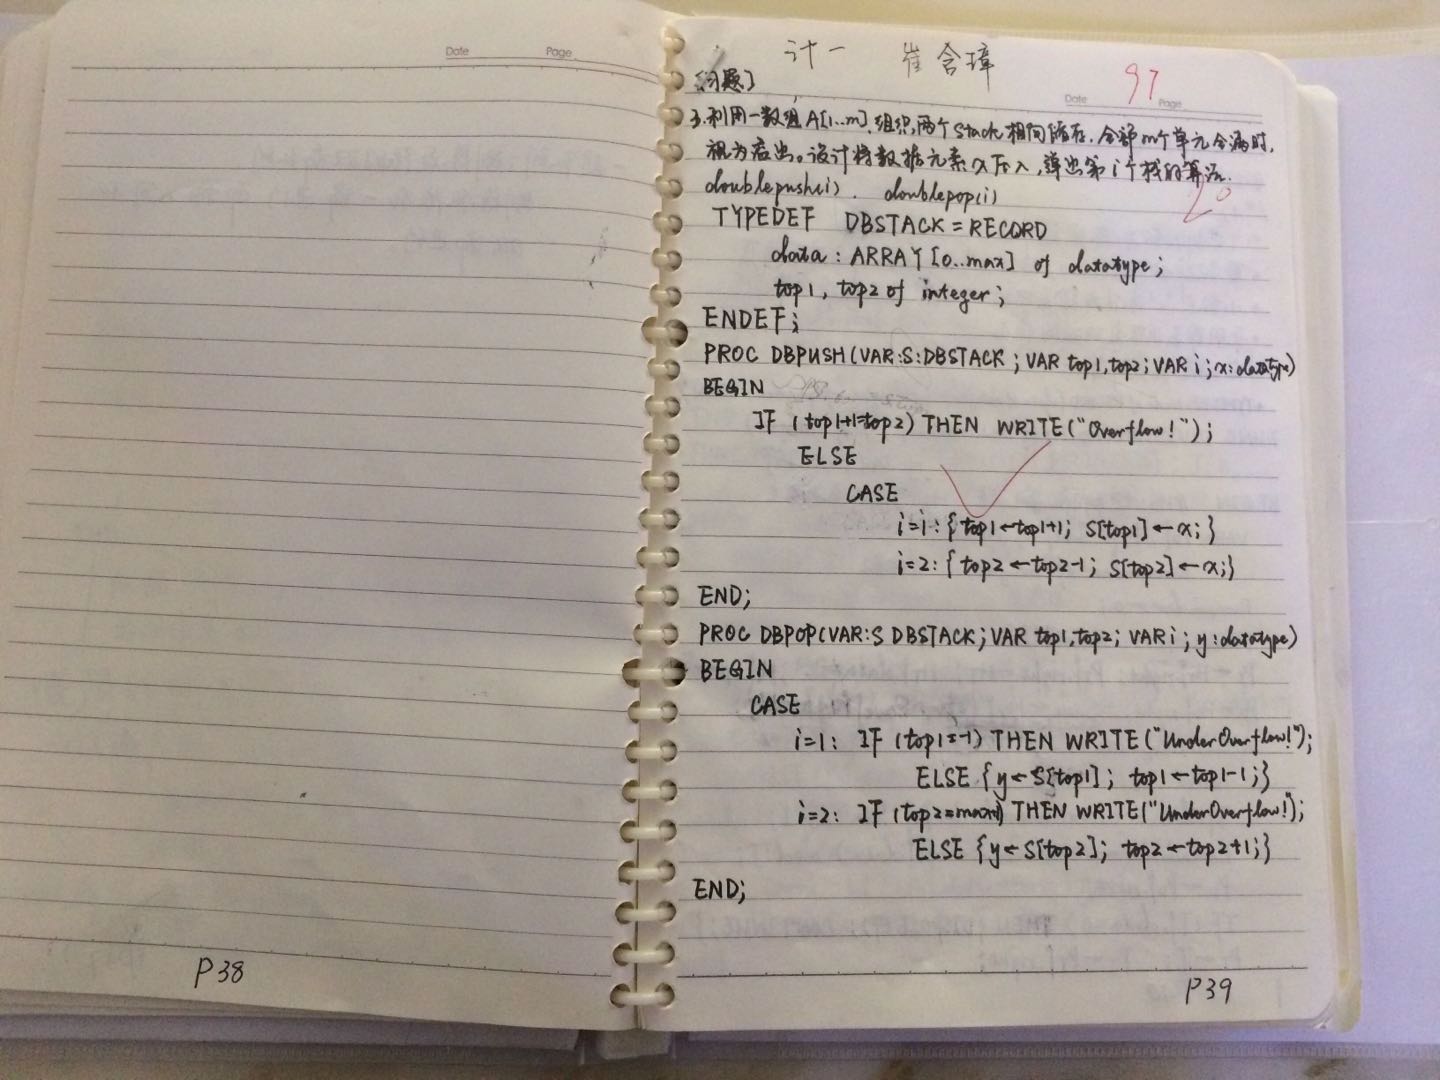 Date Page
P38
计一 崔含璋
97
Date Page
[习题]
3.利用一数组A[1..m]组织两个Stack相向储存.全部m个单元全满时,
视为溢出。设计将数据元素x压入,弹出第i个栈的算法.
20
doublepush(i). doublepop(i)
TYPEDEF DBSTACK=RECORD
data: ARRAY[0..max] of datatype;
top1, top2 of integer;
ENDEF;
PROC DBPUSH(VAR:S:DBSTACK; VAR top1,top2; VAR i; x:datatype)
BEGIN
IF (top1+1=top2) THEN WRITE("Overflow!");
ELSE
CASE
i=1: {top1←top1+1; S[top1]←x;}
i=2: {top2←top2-1; S[top2]←x;}
END;
PROC DBPOP(VAR:S DBSTACK; VAR top1,top2; VAR i; y:datatype)
BEGIN
CASE
i=1: IF (top1=-1) THEN WRITE("UnderOverflow!");
ELSE {y←S[top1]; top1←top1-1;}
i=2: IF (top2=max+1) THEN WRITE("UnderOverflow!");
ELSE {y←S[top2]; top2←top2+1;}
END;
P39